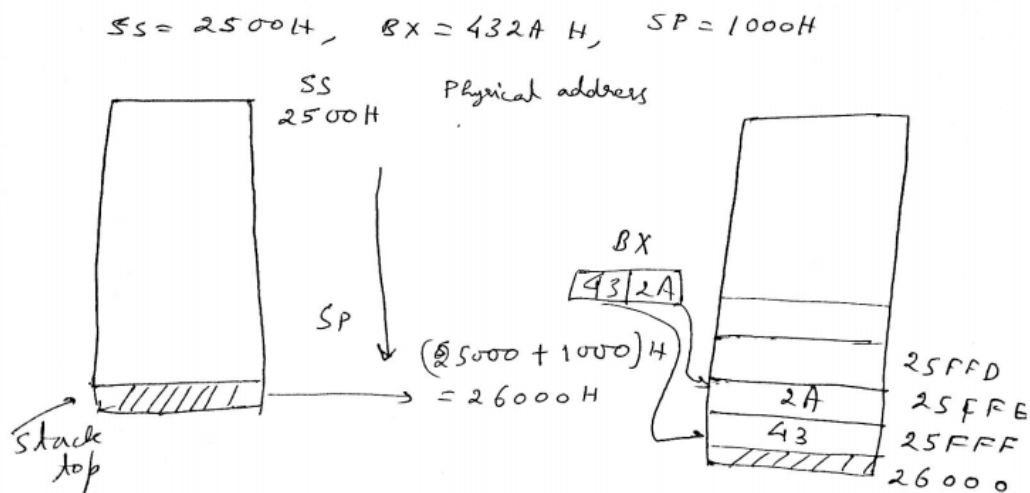 SS = 2500H, BX = 432A H, SP = 1000H
SS
2500H
Physical address
SP
(25000 + 1000)H
= 26000H
Stack
top
BX
43 2A
25FFD
2A 25FFE
43 25FFF
26000